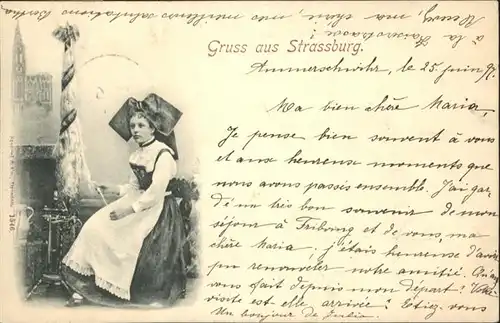 Gruss aus Strassburg.
Ammerschwihr, le 25 juin 97.
Ma bien chère Maria,
Je pense bien souvent à vous
et aux heureux moments que
nous avons passés ensemble. J'ai gar-
dé un très bon souvenir de mon
séjour à Fribourg et de vous, ma
chère Maria. j'étais heureuse d'avoir
pu renouveler notre amitié. Qu'avez
vous fait depuis mon départ? Votre
visite est elle arrivée? Etiez-vous
Un bonjour de Julie.
à la Kaiserstrasse?
mes meilleures salutations Bertha
1846.